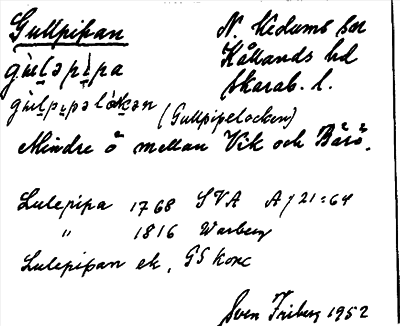 Gullpipan
N. Vedums sn
Kållands hd
Skarab. l.
gùl̠əpi̠pa
gùl̠pi̠pəlåk̠ən (Gullpipelocken)
Mindre ö mellan Vik och Bärö.
Lulepipa 1768 SVA A 121:64
" 1816 Warberg
Lulepipan ek, GS konc
Sven Friberg 1952